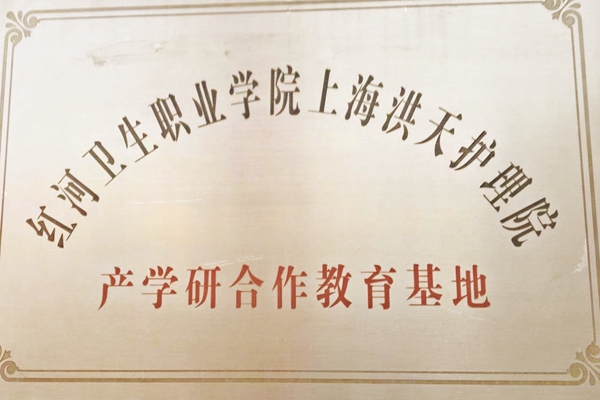 红河卫生职业学院上海洪天护理院
产学研合作教育基地